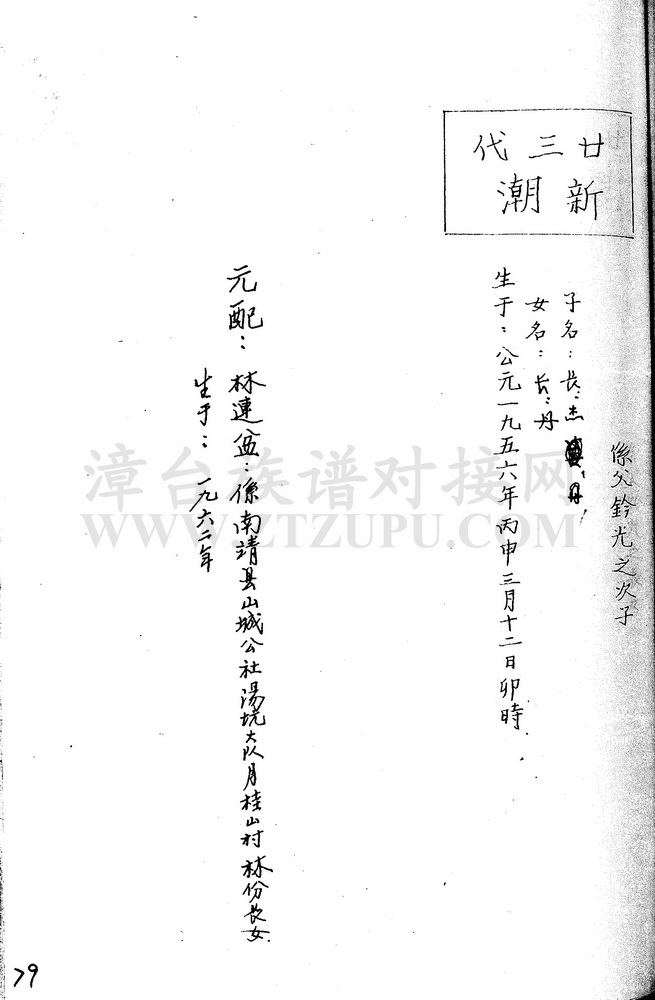 廿三代
新潮
係父鈴光之次子
子名：長：杰
女名：長：丹
生于：公元一九五六年丙申三月十二日卯時
元配：林連盆：係南靖县山城公社湯坑大队月桂山村林份長女
生于：一九六二年
漳台族谱对接网
WWW.ZTZUPU.COM
79